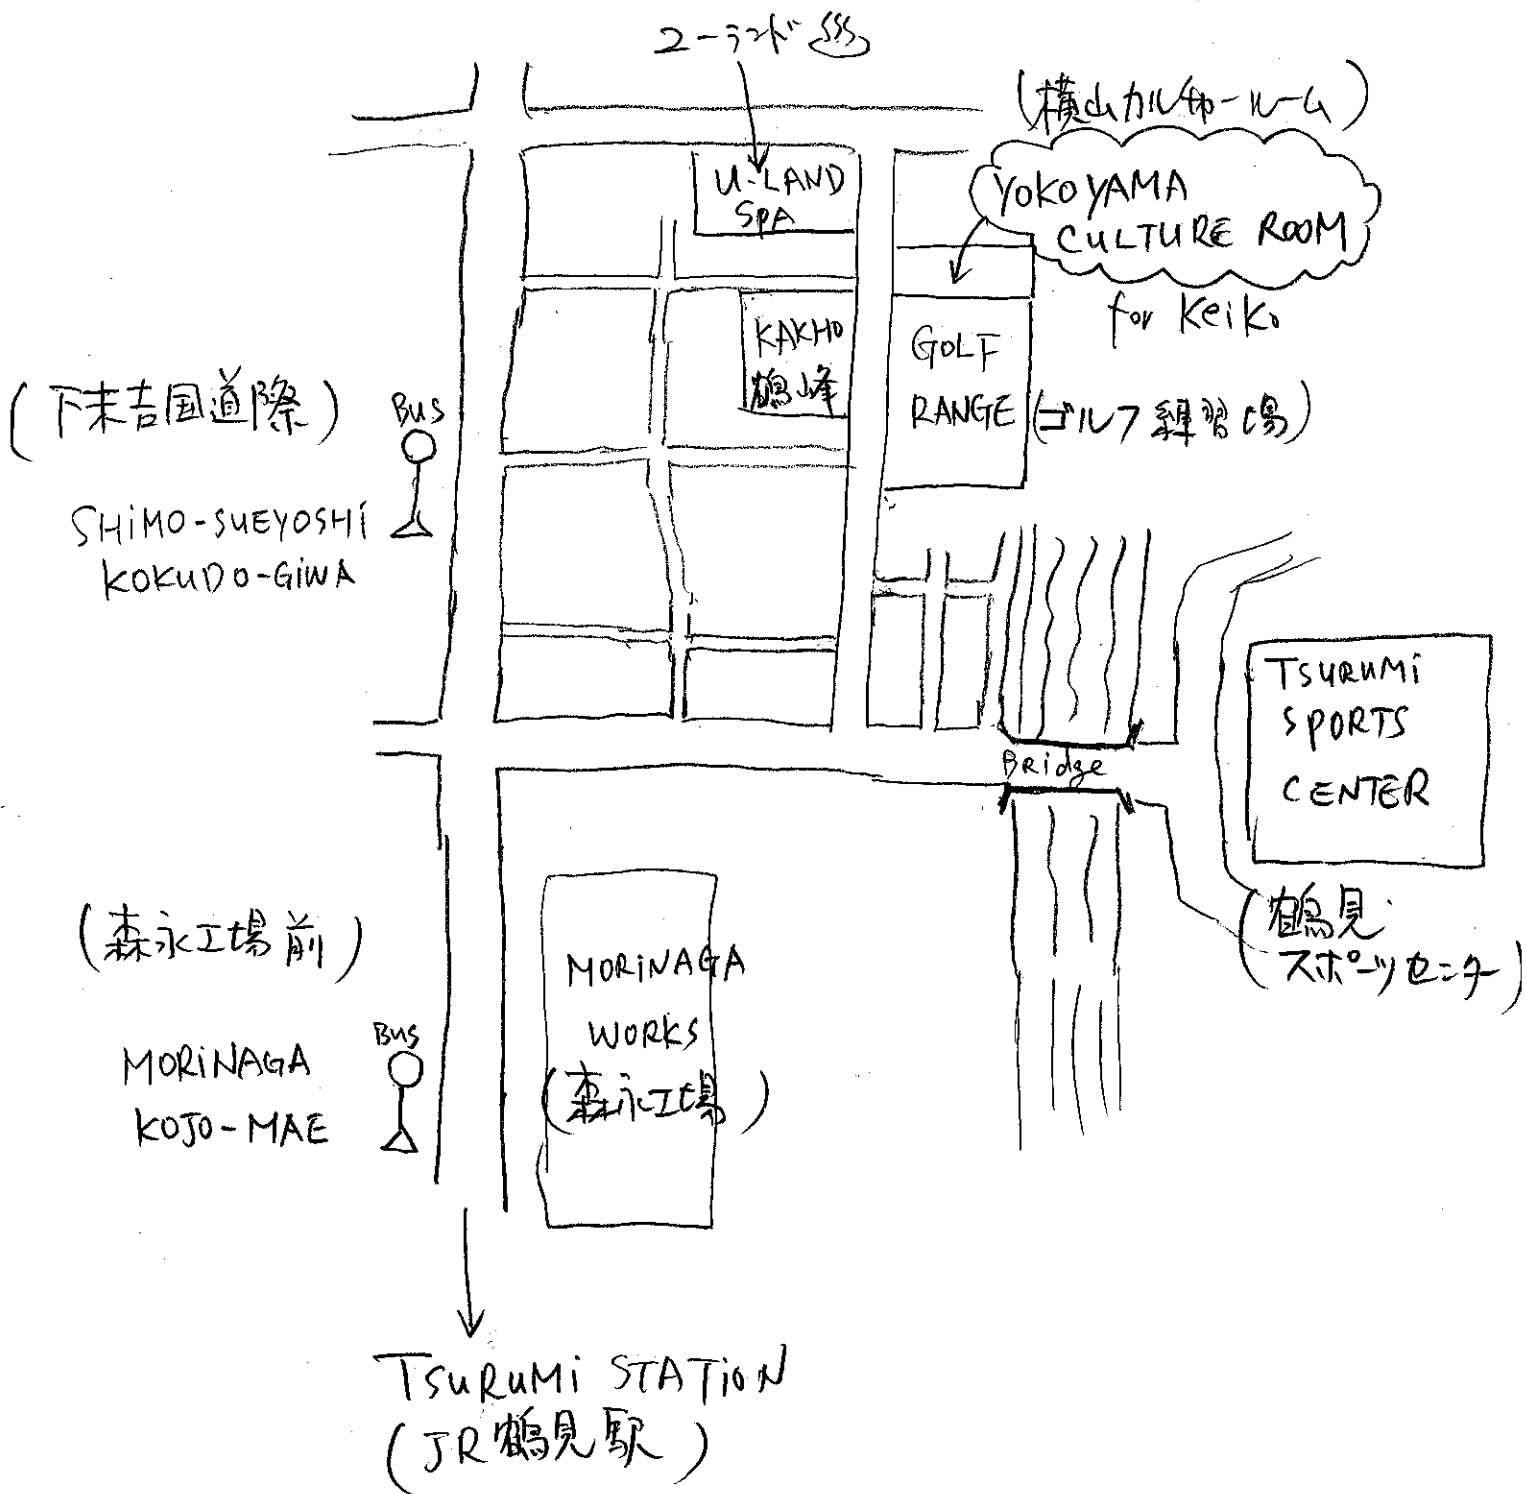 ユーランド♨
(横山カルチャールーム)
U-LAND
SPA
YOKOYAMA
CULTURE ROOM
for Keiko
KAKHO
鶴峰
GOLF
RANGE
(ゴルフ練習場)
(下末吉国道際)
BUS
SHiMO-SUEYOSHi
KOKUDO-GiWA
TSURUMi
SPORTS
CENTER
BRidge
(鶴見
スポーツセンター)
(森永工場前)
BUS
MORiNAGA
KOJO-MAE
MORiNAGA
WORKS
(森永工場)
TSURUMi STATiON
(JR鶴見駅)